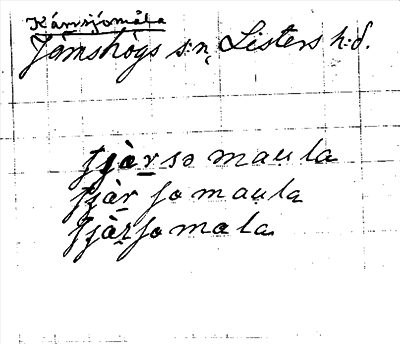 Kärrsjömåla
Jämshögs s:n, Listers h:d.
ʃjà̱rsə maula
ʃjà̱r ʃo maula
ʃjà̱rʃo mola